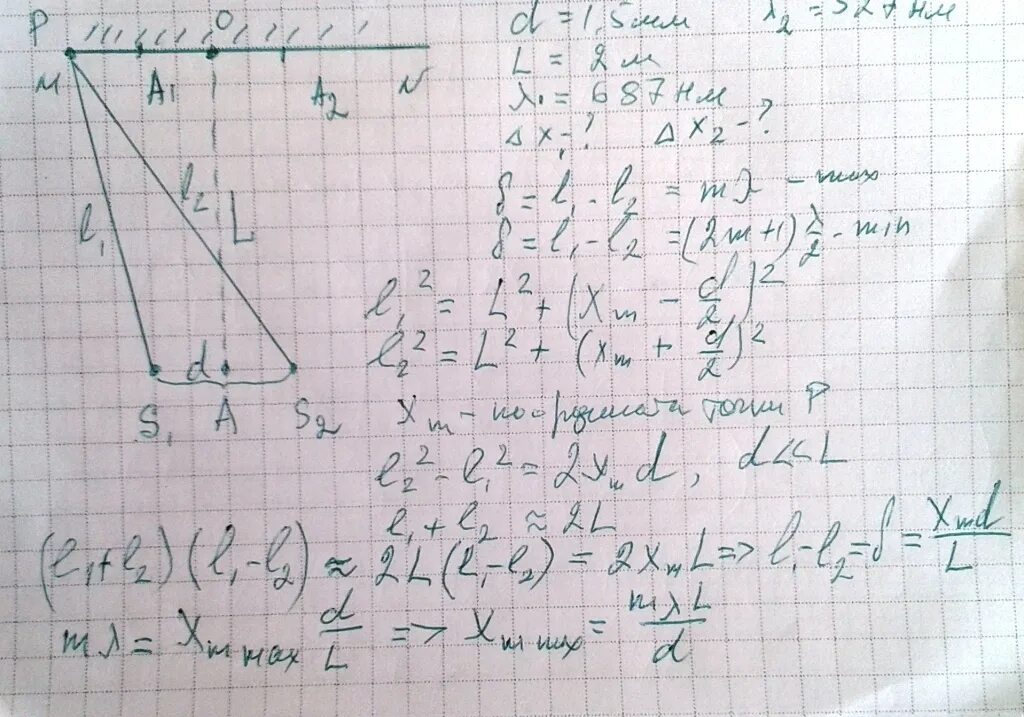 P O
M A₁ A₂ N
l₁ l₂ L
d
S₁ A S₂
d = 1,5мм λ₂ = 527 нм
L = 2 м
λ₁ = 687 нм
Δx₁-? Δx₂-?
δ = l₁ - l₂ = mλ - max
δ = l₁ - l₂ = (2m+1) λ/2 - min
l₁² = L² + (x_m - d/2)²
l₂² = L² + (x_m + d/2)²
x_m - координата точки P
l₂² - l₁² = 2x_m d, d<<L
l₁ + l₂ ≈ 2L
(l₁+l₂)(l₁-l₂) ≈ 2L(l₁-l₂) = 2x_m L => l₁-l₂ = δ = x_m d/L
mλ = x_m max d/L => x_m max = mλL/d